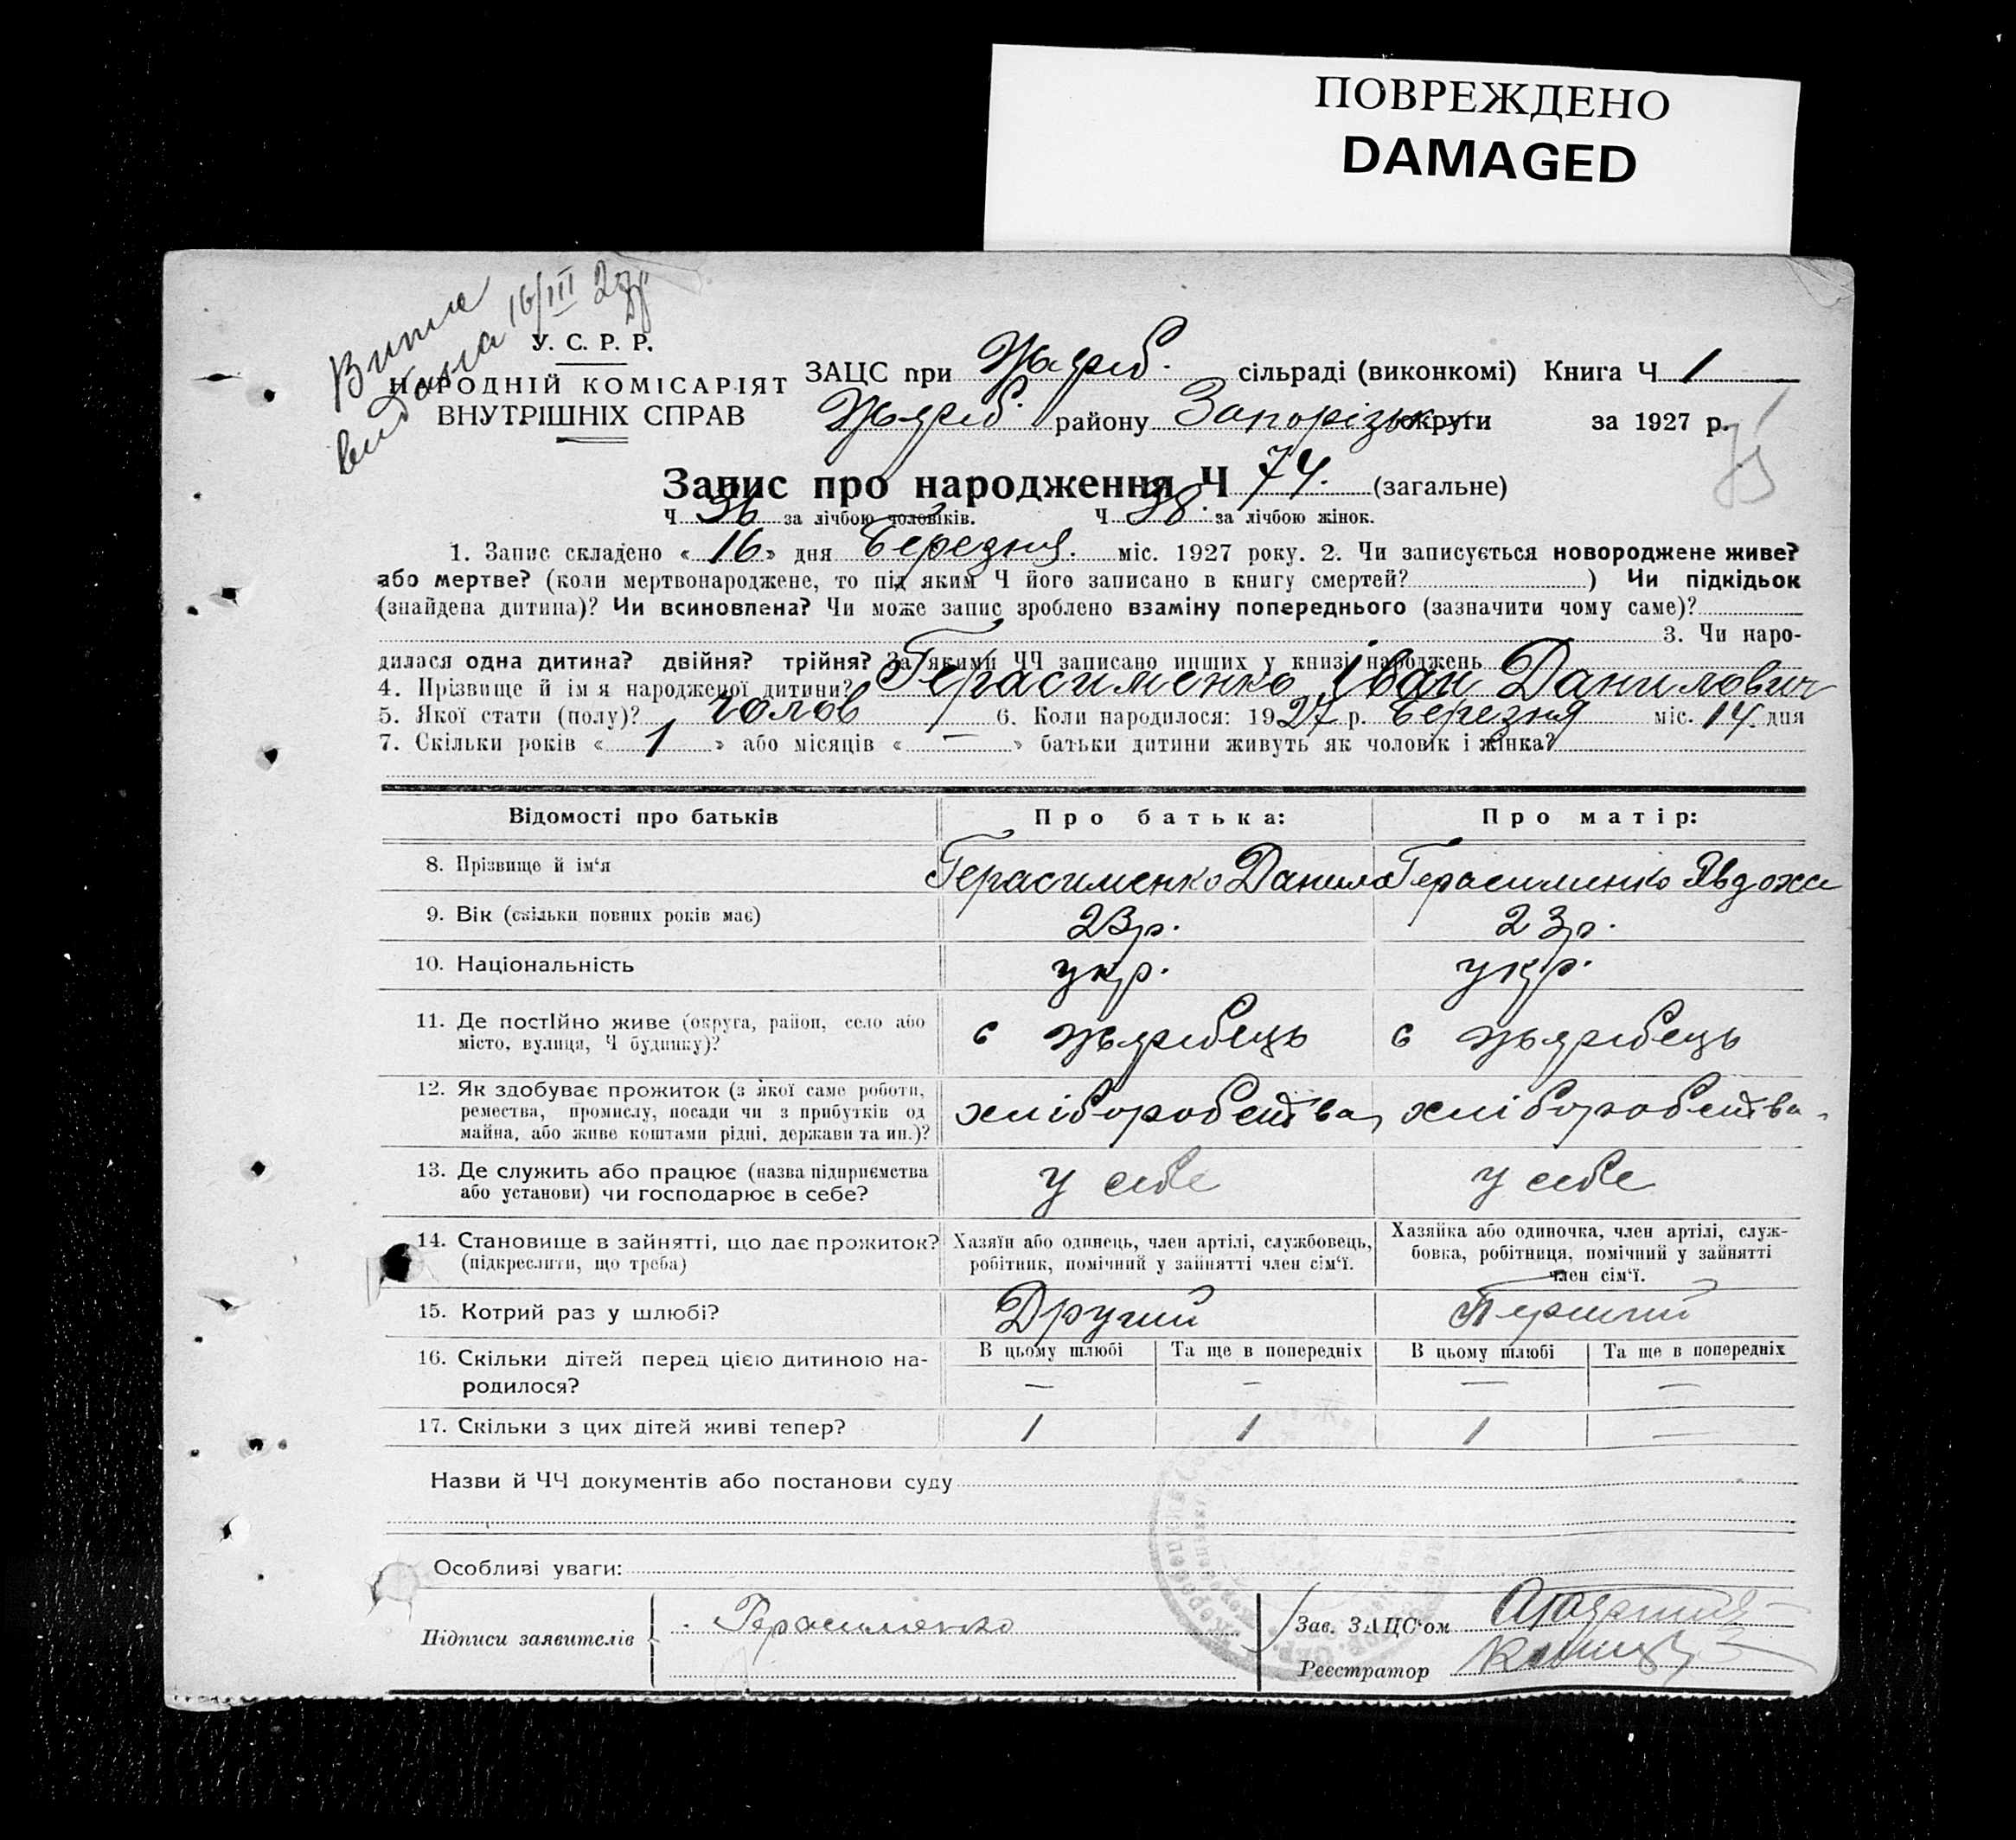 ПОВРЕЖДЕНО
DAMAGED
Випис
видана 16/III 27р
У. С. Р. Р.
НАРОДНІЙ КОМІСАРІЯТ
ВНУТРІШНІХ СПРАВ
ЗАЦС при Жереб. сільраді (виконкомі) Книга Ч 1
Жереб. району Запорізьк округи за 1927 р.
Запис про народження Ч 74. (загальне)
Ч 36 за лічбою чоловіків. Ч 38. за лічбою жінок.
1. Запис складено « 16 » дня Березня. міс. 1927 року. 2. Чи записується новороджене живе?
або мертве? (коли мертвонароджене, то під яким Ч його записано в книгу смертей? ) Чи підкідьок
(знайдена дитина)? Чи всиновлена? Чи може запис зроблено взаміну попереднього (зазначити чому саме)?
3. Чи наро-
дилася одна дитина? двійня? трійня? За якими ЧЧ записано инших у книзі народжень
4. Прізвище й ім я народженої дитини? Герасименко Іван Данилович
5. Якої стати (полу)? чолов 6. Коли народилося: 1927 р. Березня міс. 14 дня
7. Скільки років « 1 » або місяців « — » батьки дитини живуть як чоловік і жінка?
Відомості про батьків Про батька: Про матір:
8. Прізвище й ім‘я Герасименко Данило Герасименко Явдоха
9. Вік (скільки повних років має) 23р. 23р.
10. Національність укр. укр.
11. Де постійно живе (округа, район, село або
місто, вулиця, Ч будинку)? с Жеребець с Жеребець
12. Як здобуває прожиток (з якої саме роботи,
ремества, промислу, посади чи з прибутків од
майна, або живе коштами рідні, держави та ин.)? хліборобства, хліборобства.
13. Де служить або працює (назва підприємства
або установи) чи господарює в себе? у себе у себе
14. Становище в зайнятті, що дає прожиток?
(підкреслити, що треба)
Хазяїн або одинець, член артілі, службовець,
робітник, помічний у зайнятті член сім‘ї.
Хазяйка або одиночка, член артілі, служ-
бовка, робітниця, помічний у зайнятті
член сім‘ї.
15. Котрий раз у шлюбі? Другий Перший
16. Скільки дітей перед цією дитиною на-
родилося?
В цьому шлюбі Та ще в попередніх В цьому шлюбі Та ще в попередніх
— — — —
17. Скільки з цих дітей живі тепер? 1 1 1 —
Назви й ЧЧ документів або постанови суду
Особливі уваги:
Підписи заявителів Герасименко
Зав. ЗАЦС‘ом
Реєстратор